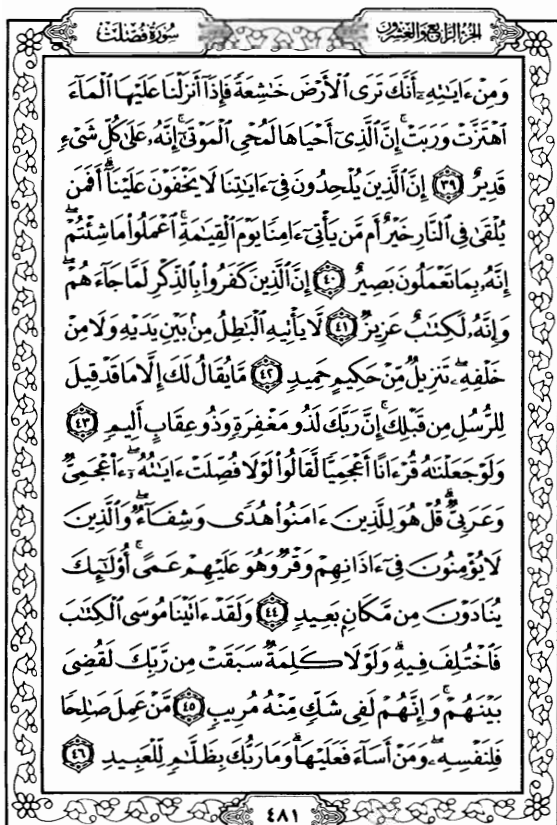 سُورَةُ فُصِّلَتْ الجُزْءُ الرَّابِعُ وَالعِشْرُونَ
وَمِنْ ءَايَٰتِهِۦٓ أَنَّكَ تَرَى ٱلْأَرْضَ خَٰشِعَةً فَإِذَآ أَنزَلْنَا عَلَيْهَا ٱلْمَآءَ
ٱهْتَزَّتْ وَرَبَتْ ۚ إِنَّ ٱلَّذِىٓ أَحْيَاهَا لَمُحْىِ ٱلْمَوْتَىٰٓ ۚ إِنَّهُۥ عَلَىٰ كُلِّ شَىْءٍ
قَدِيرٌ ٣٩ إِنَّ ٱلَّذِينَ يُلْحِدُونَ فِىٓ ءَايَٰتِنَا لَا يَخْفَوْنَ عَلَيْنَآ ۗ أَفَمَن
يُلْقَىٰ فِى ٱلنَّارِ خَيْرٌ أَم مَّن يَأْتِىٓ ءَامِنًا يَوْمَ ٱلْقِيَٰمَةِ ۚ ٱعْمَلُوا۟ مَا شِئْتُمْ ۖ
إِنَّهُۥ بِمَا تَعْمَلُونَ بَصِيرٌ ٤٠ إِنَّ ٱلَّذِينَ كَفَرُوا۟ بِٱلذِّكْرِ لَمَّا جَآءَهُمْ ۖ
وَإِنَّهُۥ لَكِتَٰبٌ عَزِيزٌ ٤١ لَّا يَأْتِيهِ ٱلْبَٰطِلُ مِنۢ بَيْنِ يَدَيْهِ وَلَا مِنْ
خَلْفِهِۦ ۖ تَنزِيلٌ مِّنْ حَكِيمٍ حَمِيدٍ ٤٢ مَّا يُقَالُ لَكَ إِلَّا مَا قَدْ قِيلَ
لِلرُّسُلِ مِن قَبْلِكَ ۚ إِنَّ رَبَّكَ لَذُو مَغْفِرَةٍ وَذُو عِقَابٍ أَلِيمٍ ٤٣
وَلَوْ جَعَلْنَٰهُ قُرْءَانًا أَعْجَمِيًّا لَّقَالُوا۟ لَوْلَا فُصِّلَتْ ءَايَٰتُهُۥٓ ۖ ءَا۬عْجَمِىٌّ
وَعَرَبِىٌّ ۗ قُلْ هُوَ لِلَّذِينَ ءَامَنُوا۟ هُدًى وَشِفَآءٌ ۖ وَٱلَّذِينَ
لَا يُؤْمِنُونَ فِىٓ ءَاذَانِهِمْ وَقْرٌ وَهُوَ عَلَيْهِمْ عَمًى ۚ أُو۟لَٰٓئِكَ
يُنَادَوْنَ مِن مَّكَانٍۭ بَعِيدٍ ٤٤ وَلَقَدْ ءَاتَيْنَا مُوسَى ٱلْكِتَٰبَ
فَٱخْتُلِفَ فِيهِ ۗ وَلَوْلَا كَلِمَةٌ سَبَقَتْ مِن رَّبِّكَ لَقُضِىَ
بَيْنَهُمْ ۚ وَإِنَّهُمْ لَفِى شَكٍّ مِّنْهُ مُرِيبٍ ٤٥ مَّنْ عَمِلَ صَٰلِحًا
فَلِنَفْسِهِۦ ۖ وَمَنْ أَسَآءَ فَعَلَيْهَا ۗ وَمَا رَبُّكَ بِظَلَّٰمٍ لِّلْعَبِيدِ ٤٦
٤٨١